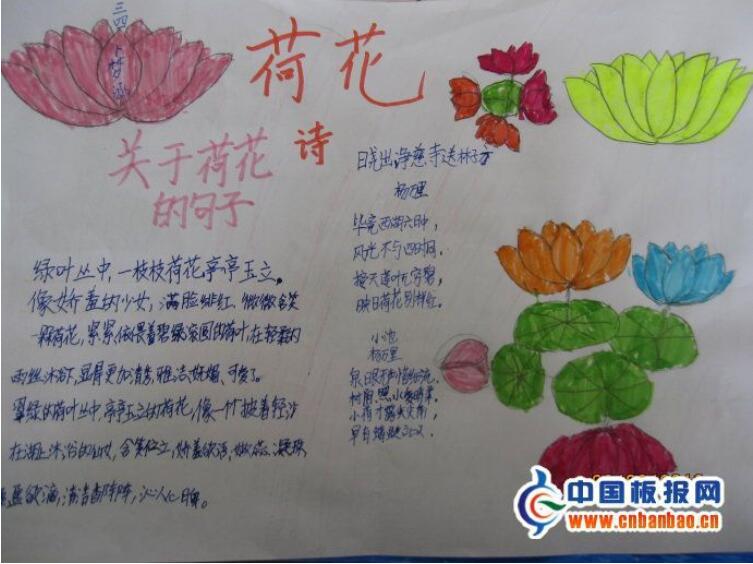 三四
荷花
关于荷花
的句子
诗
晓出净慈寺送林子方
杨万里
毕竟西湖六月中，
风光不与四时同。
接天莲叶无穷碧，
映日荷花别样红。
小池
杨万里
泉眼无声惜细流，
树阴照水爱晴柔。
小荷才露尖尖角，
早有蜻蜓立上
绿叶丛中，一枝枝荷花亭亭玉立。
像娇羞的少女，满脸绯红，微微含笑
一颗荷花，紧紧偎着碧绿滚圆的荷叶，在轻
雨丝沐浴下，显得更加清秀，雅洁，妩媚、可爱了。
翠绿的荷叶丛中，亭亭玉立的荷花，像一个披着轻沙
在湖上沐浴的仙女，含笑伫立，娇羞欲语，嫩蕊凝珠
盈盈欲滴，清香阵阵，沁人心脾。
中国板报网
www.cnbanbao.cn